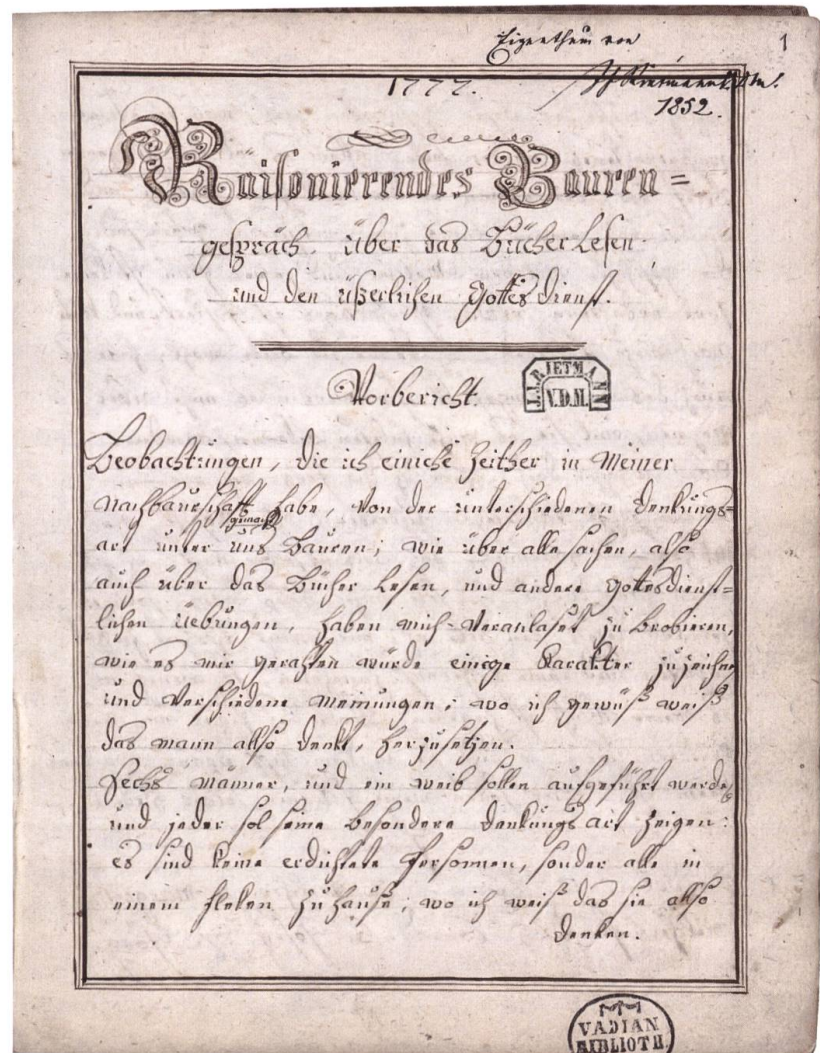 Eigenthum von
1
1777.
1852.
Raisonierendes Bauren=
gespräch, über das Bücher Lesen
und den üßerlichen Gottesdienst.
Vorbericht.
J.J. RIETMANN
V.D.M.
Beobachtungen, die ich einiche Zeither in Meiner
Nachbaurschafft habe, von der unterschiedenen denkungs=
gemacht
art unter uns Bauren; wie über alle sachen, also
auch über das Bücher Lesen, und andere gottesdienst=
lichen Uebungen, haben mich Veranlaset zu brobieren,
wie es mir gerahten würde einige Karakter zu zeichnen
und Verschiedene Meinungen; wo ich gewüß weiß
das mann allso denkt, herzusetzen.
Sechs Männer, und ein weib sollen aufgeführt werden
und jeder sol seine besondere denkungs art zeigen:
es sind keine erdichtete Personnen, sonder alle in
einem fleken zu hause; wo ich weiß das sie allso
denken.
VADIAN
BIBLIOTH.